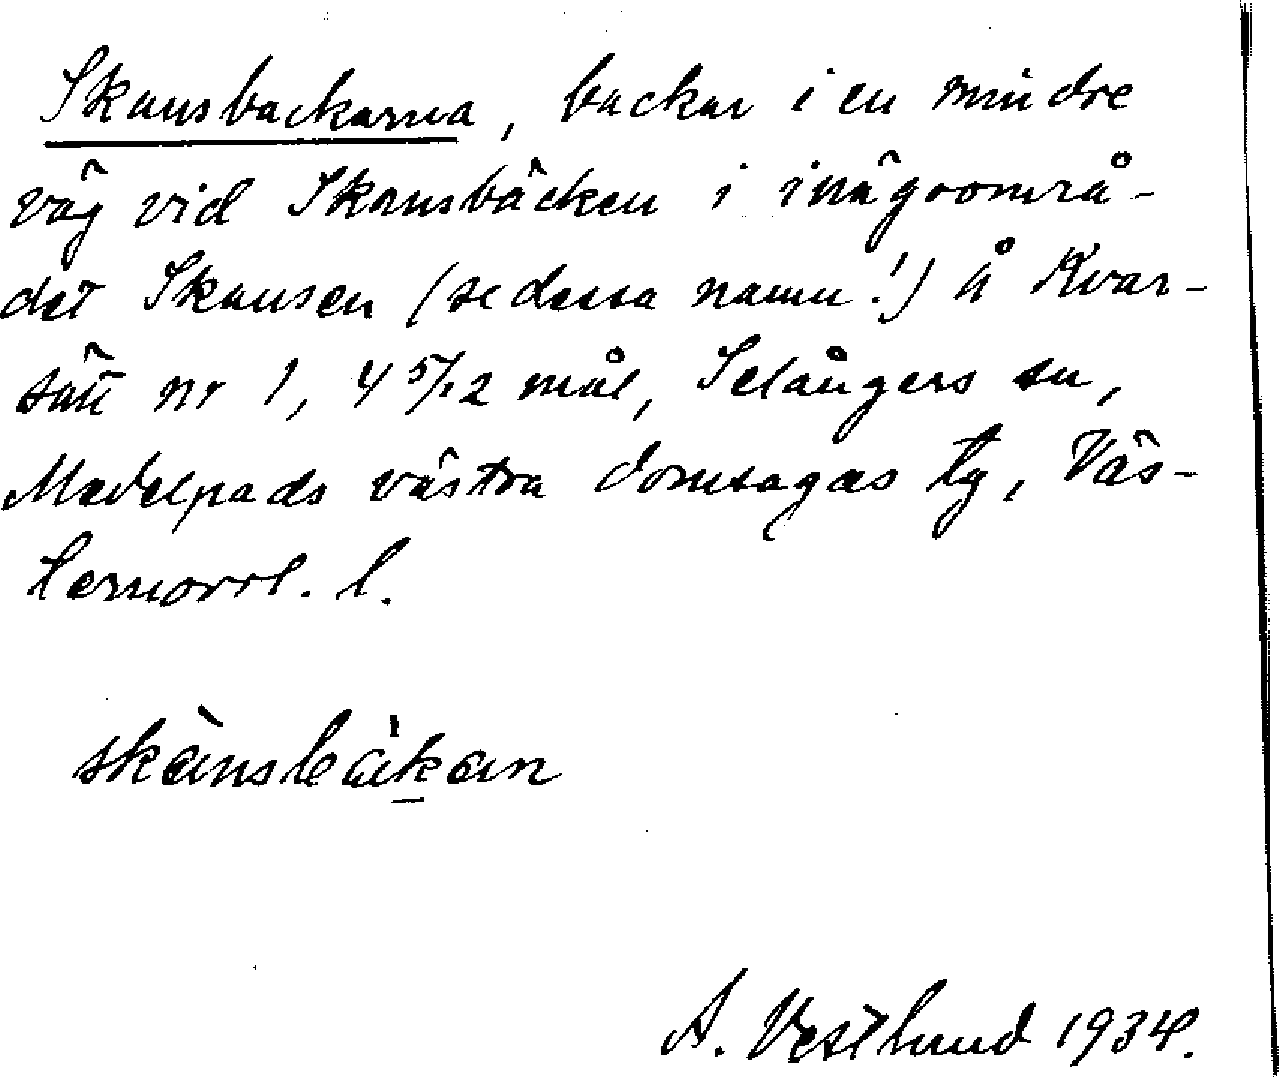 Skansbackarna, backar i en mindre
väg vid Skansbäcken i inägoområ-
det Skansen (se dessa namn!) å Kvar-
sätt nr 1, 4 5/12 mål, Selångers sn,
Medelpads västra domsagas tg, Väs-
ternorrl. l.
skànsbàkan
A. Vestlund 1934.